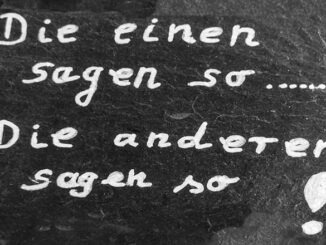 Die einen
sagen so ......
Die anderen
sagen so !